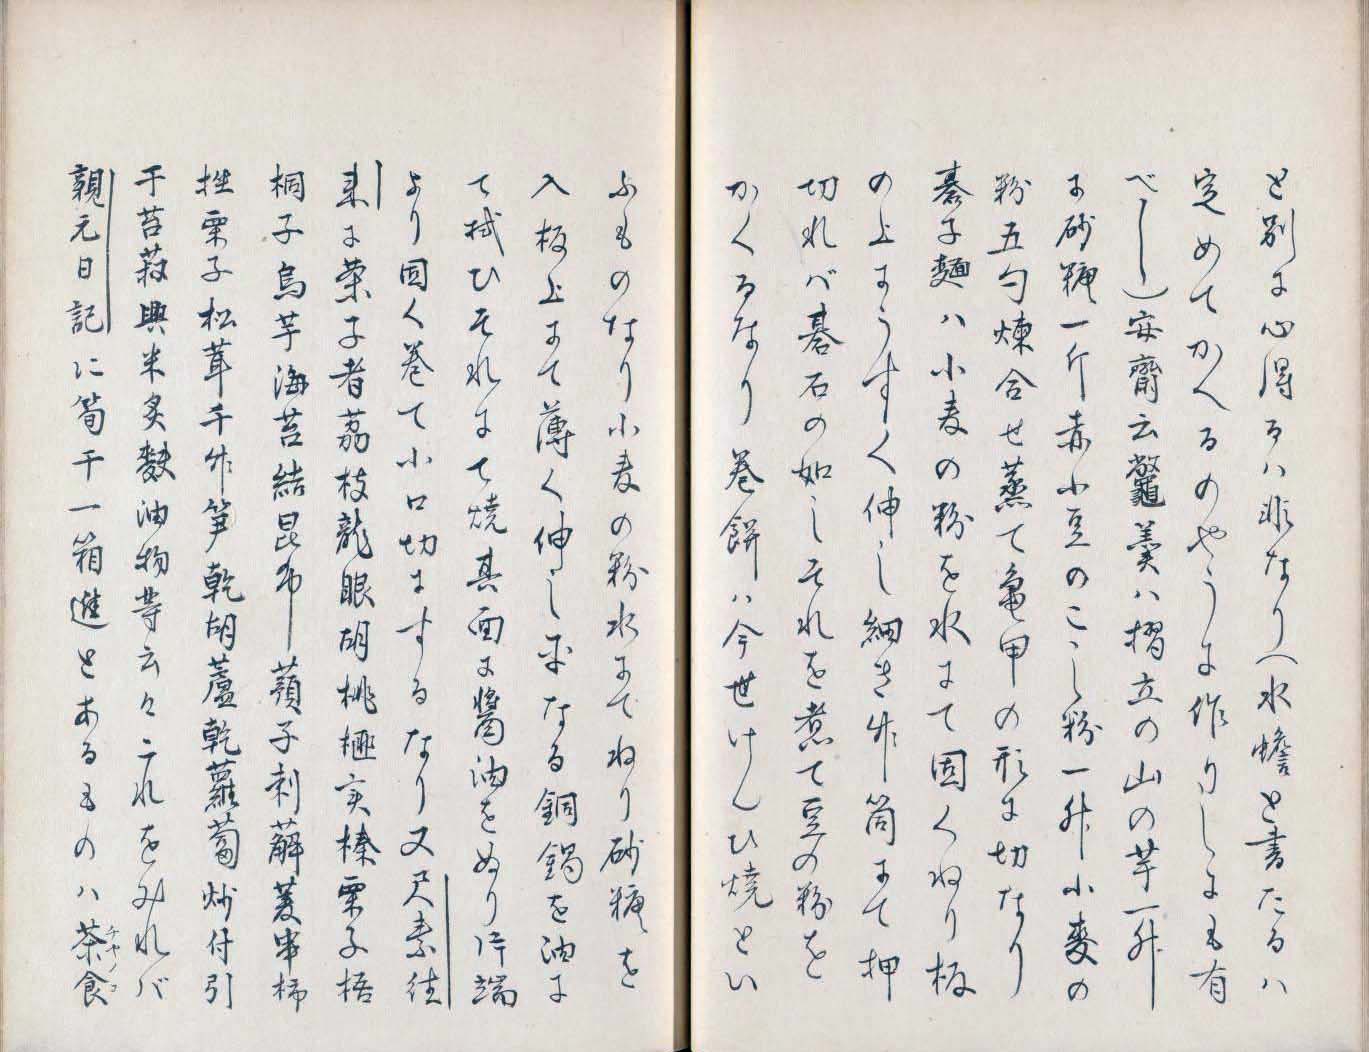 と別に心得るハ非なり（水蟾と書たるハ
定めてかへるのやうに作りしにも有
べし）安齋云鼈羹ハ摺立の山の芋一升
に砂糖一斤赤小豆のこし粉一升小麦の
粉五勺煉合せ蒸て亀甲の形に切なり
碁子麺ハ小麦の粉を水にて固くねり板
の上にうすく伸し細き竹筒にて押
切れバ碁石の如しそれを煮て豆の粉を
かくるなり巻餅ハ今世けんひ焼とい
ふものなり小麦の粉水にてねり砂糖を
入板上にて薄く伸し平なる銅鍋を油に
て拭ひそれにて焼其面に醬油をぬり片端
より固く巻て小口切にするなり又尺素往
来に菓子者荔枝龍眼胡桃榧実榛栗子梧
桐子烏芋海苔結昆布蘋子刺薢菱串柿
挫栗子松茸干竹笋乾胡蘆乾蘿蔔炒付引
干苔菽興米炙麩油物等云々これをみれバ
親元日記に筍干一箱進とあるものハ茶食
チヤノコ